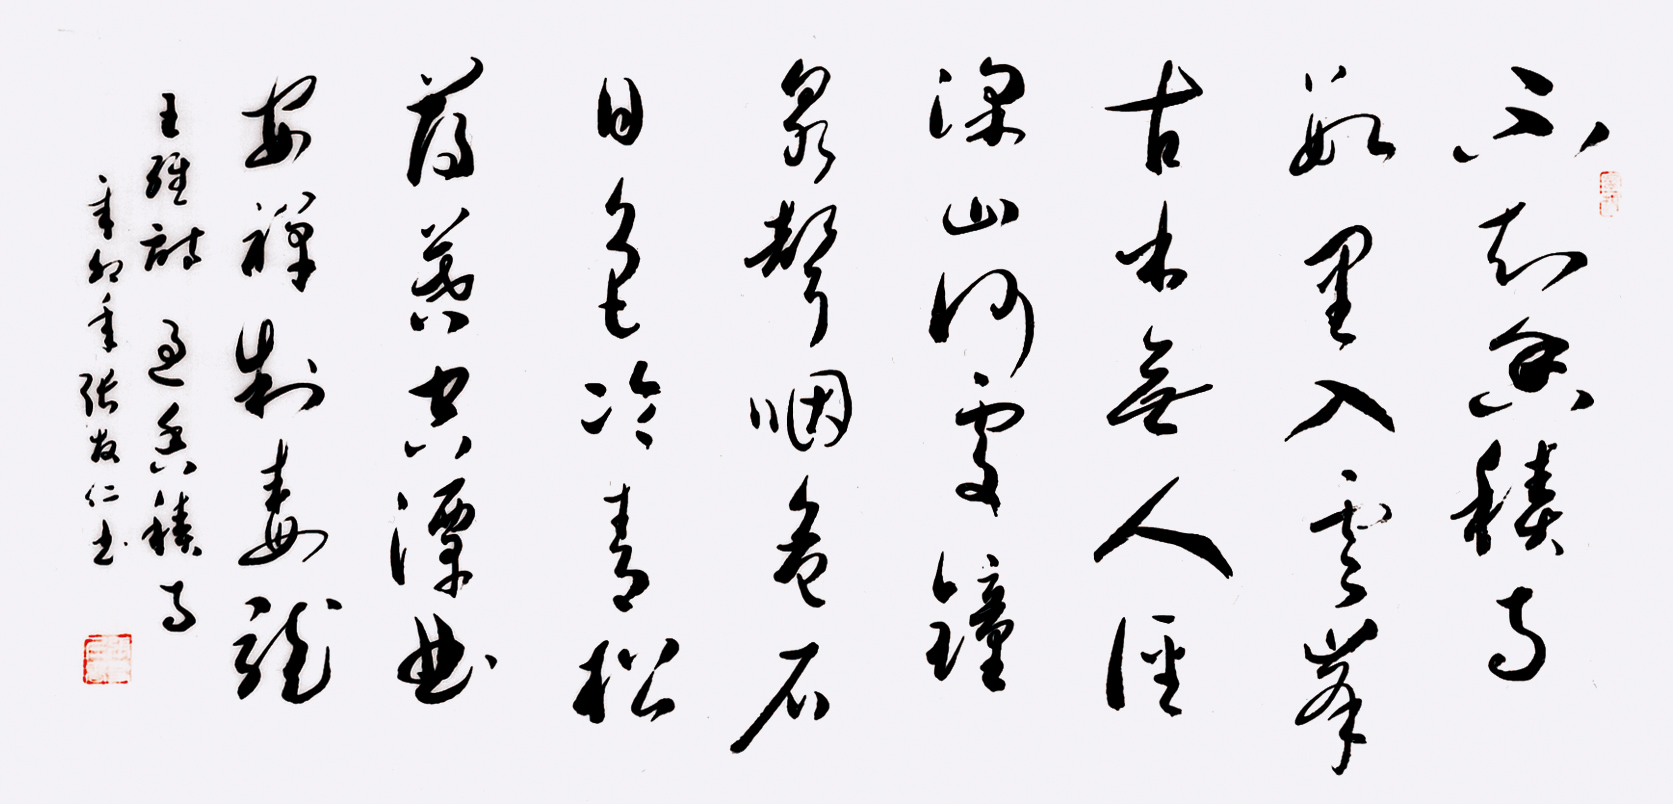 不知香積寺
數里入雲峯
古木無人徑
深山何處鐘
泉聲咽危石
日色冷青松
薄暮空潭曲
安禪制毒龍
王維詩 過香積寺
辛卯年張友仁書